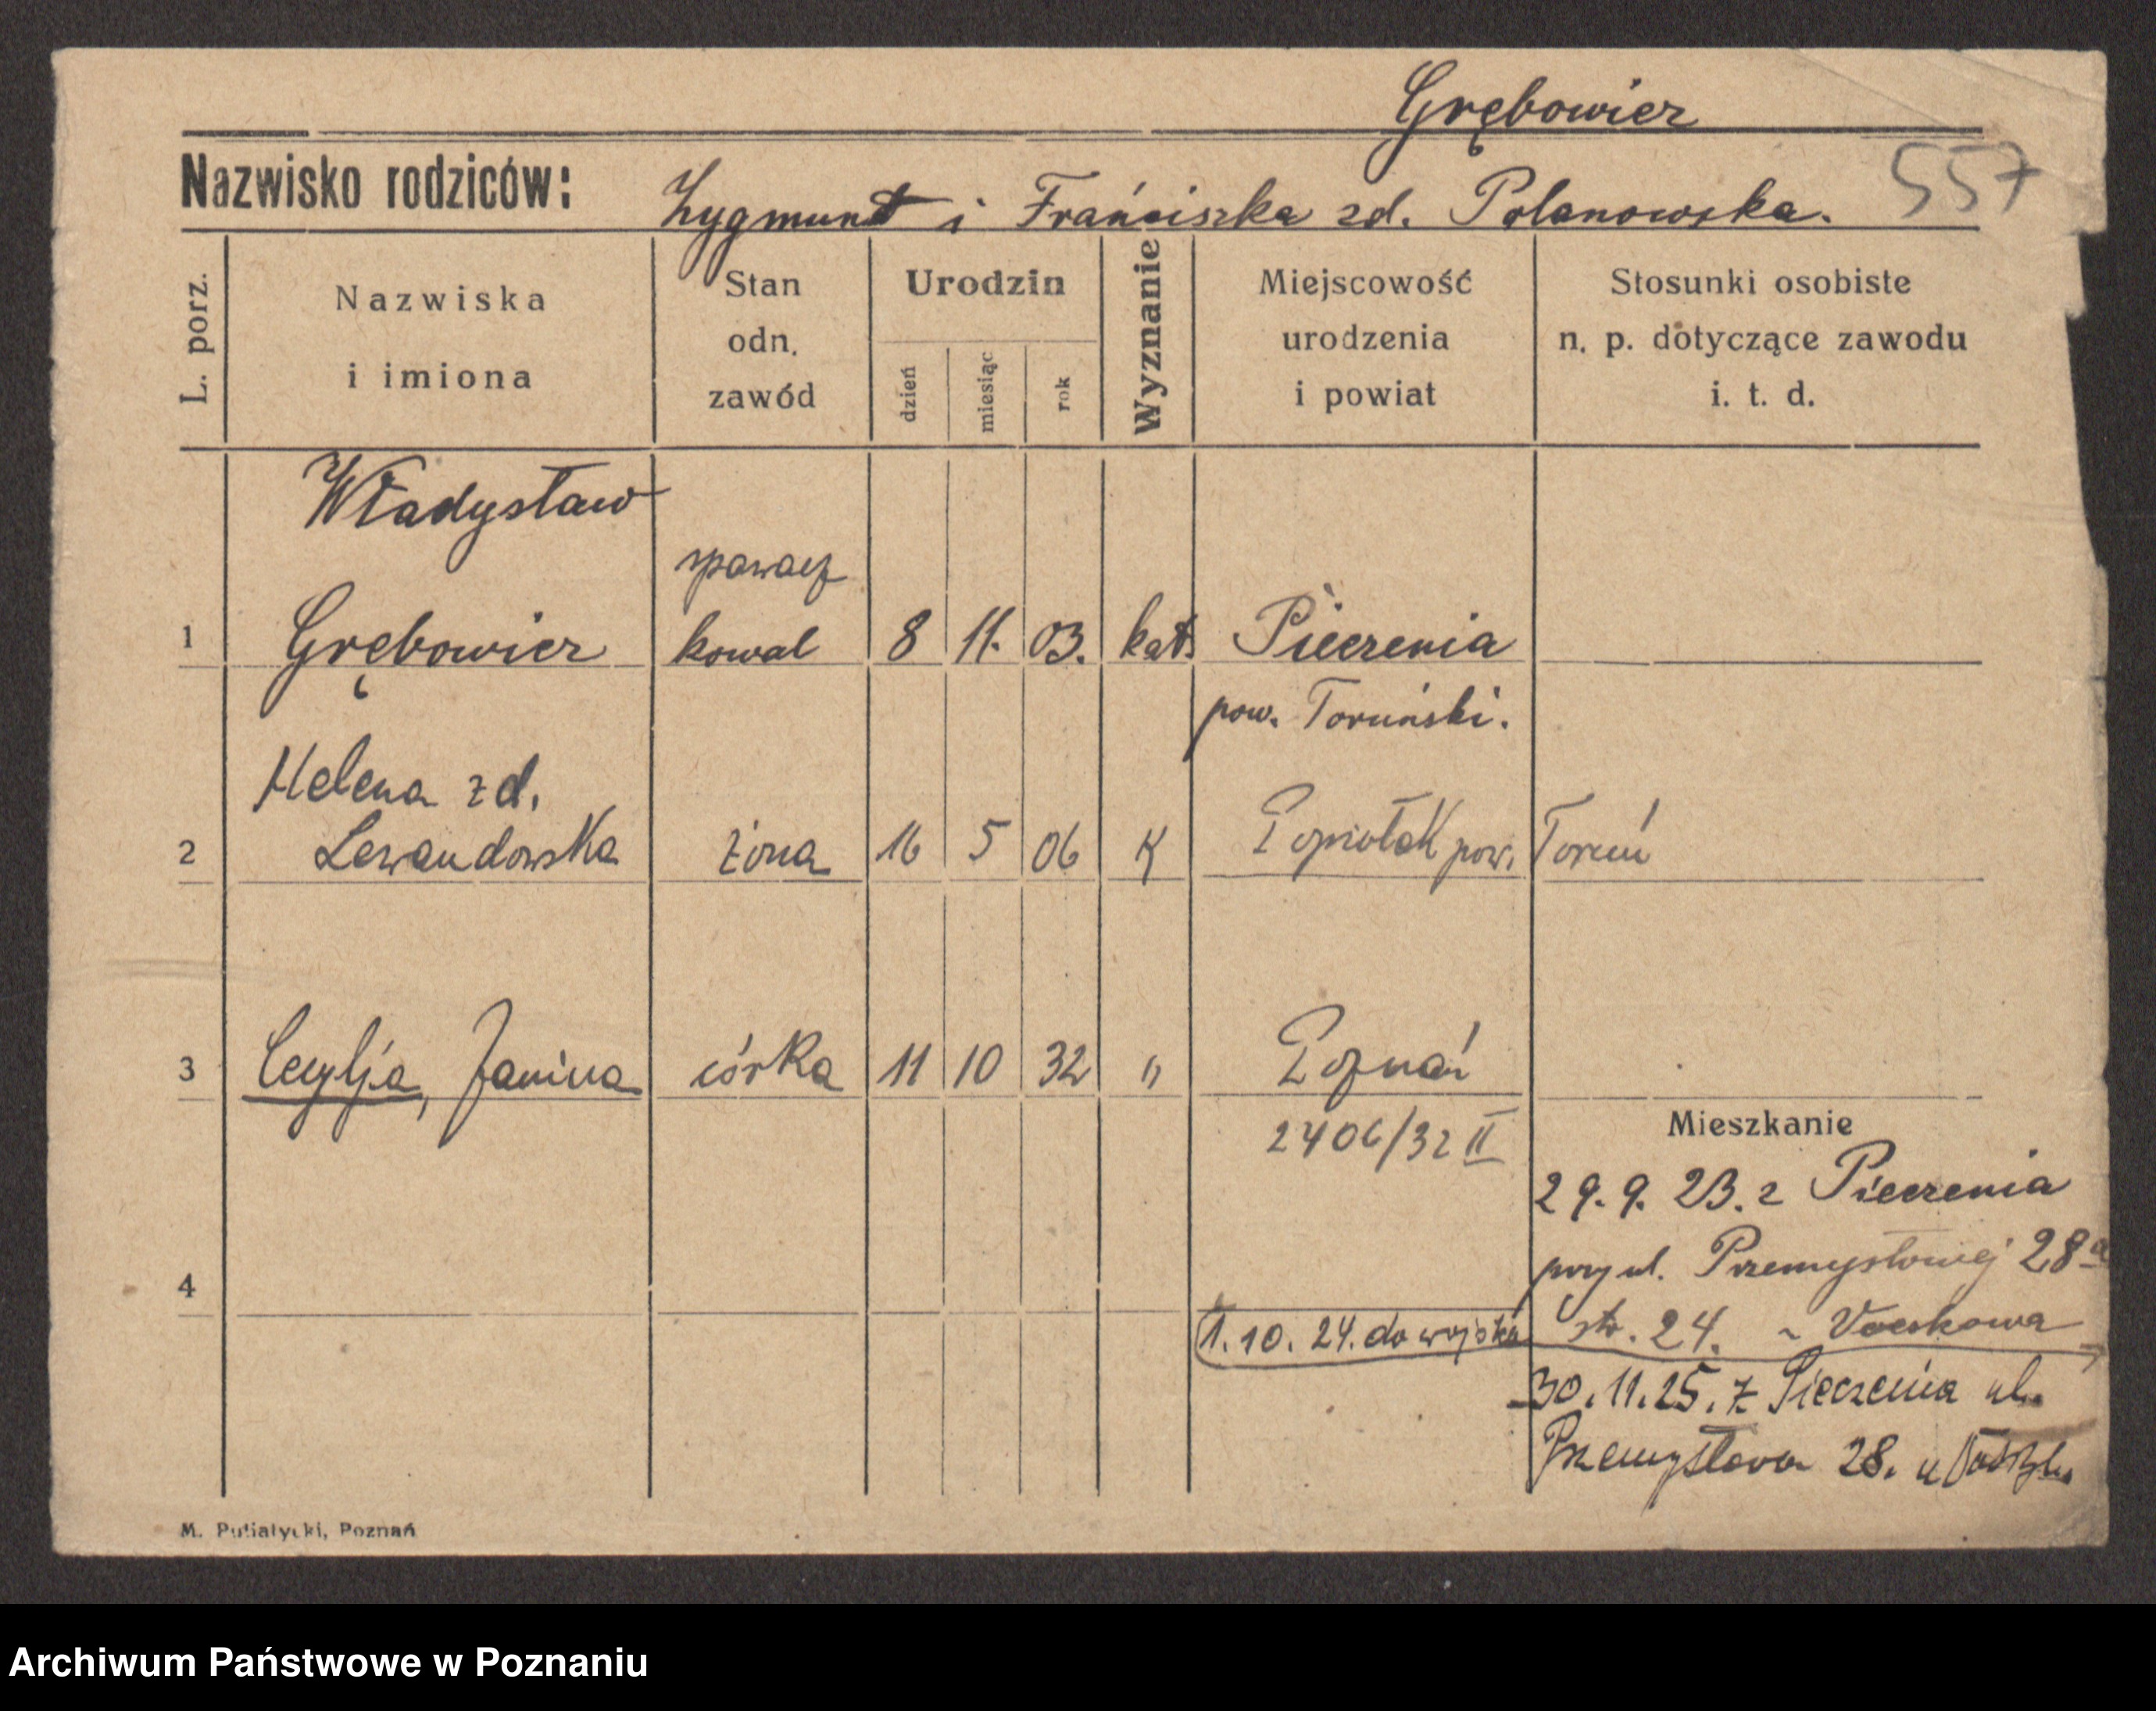 Grębowier
Nazwisko rodziców: Zygmunt i Franciszka zd. Polanowska.
557
L. porz.
Nazwiska
i imiona
Stan
odn.
zawód
Urodzin
dzień
miesiąc
rok
Wyznanie
Miejscowość
urodzenia
i powiat
Stosunki osobiste
n. p. dotyczące zawodu
i. t. d.
Władysław
spawacz
1 Grębowier kowal 8 11. 03. kat. Pieczenia
pow. Toruński.
Helena zd.
2 Lewandowska żona 16 5 06 K Popiołek pow. Toruń
3 Cecylja, Janina córka 11 10 32 " Poznań
2406/32 II
Mieszkanie
29. 9. 23. z Pieczenia
przy ul. Przemysłowej 28a
4
1. 10. 24. do wojska str. 24.
30. 11. 25. z Pieczenia ul.
Przemysłowa 28. u
M. Putiatycki, Poznań
Archiwum Państwowe w Poznaniu